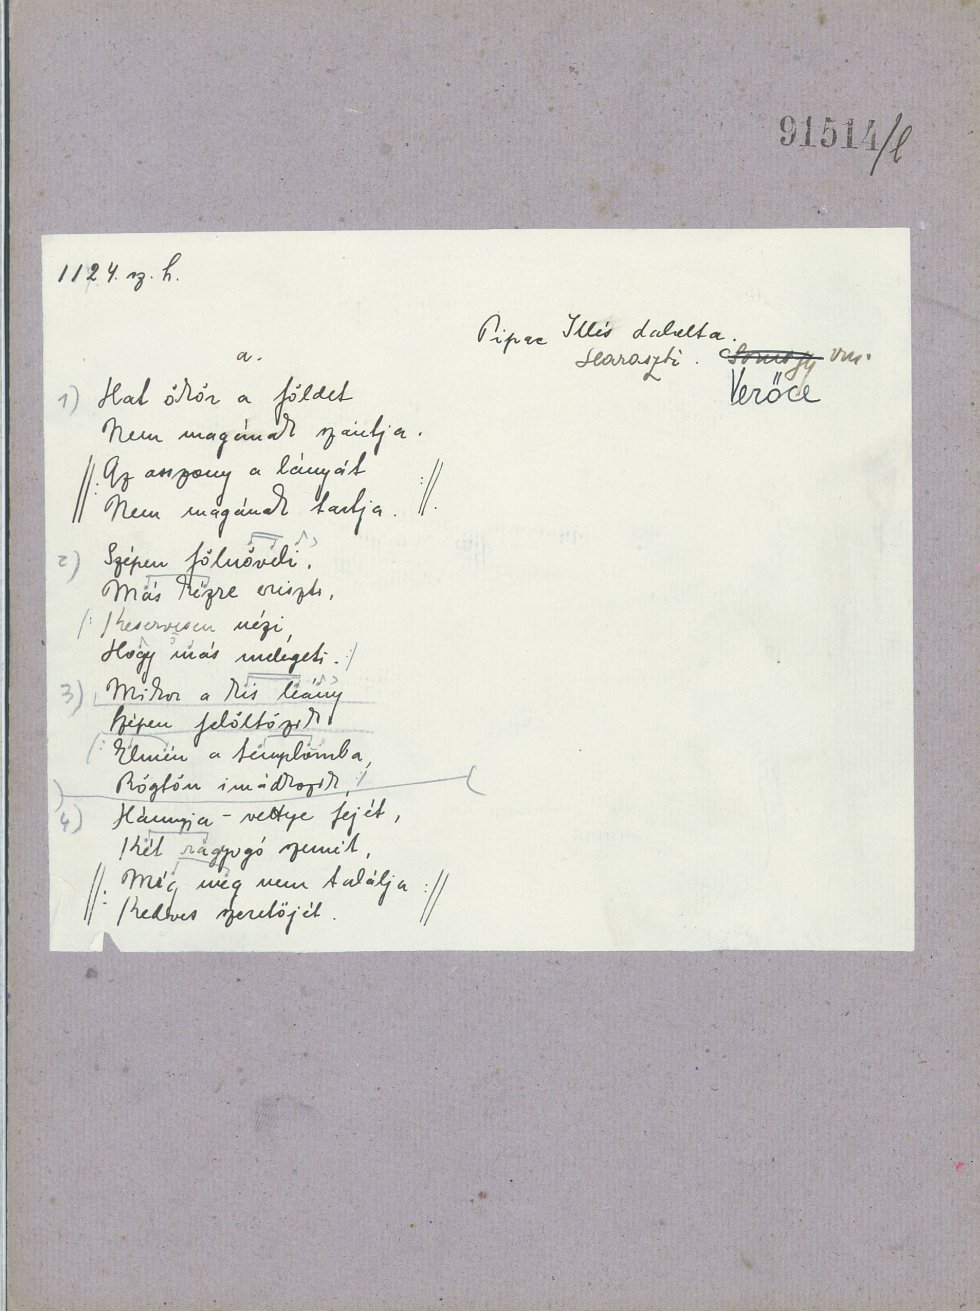 91514/l
1124. sz. h.
Pipac Illés dalolta.
Haraszti. Somogy vm.
Verőce
a.
1) Hat ökör a földet
Nem magának szántja.
//: Az asszony a lányát
Nem magának tartja. ://
2) Szépen fölnöveli,
Más kézre ereszti,
/: Keservesen nézi,
Hogy más melegeti. :/
3) Mikor a kis leány
Szépen felöltözik
/: Elmén a templomba,
Rögtön imádkozik, :/
4) Hánnyja-vettye fejét,
Két ragyogó szemét,
//: Míg meg nem találja ://
Kedves szeretőjét.